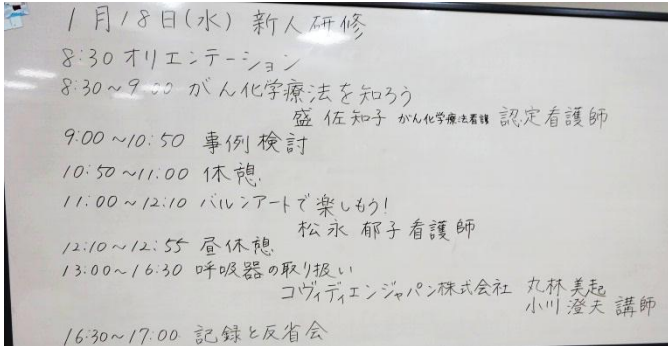 1月18日(水) 新人研修
8:30 オリエンテーション
8:30～9:00 がん化学療法を知ろう
盛 佐知子 がん化学療法看護 認定看護師
9:00～10:50 事例検討
10:50～11:00 休憩
11:00～12:10 バルンアートで楽しもう!
松永 郁子 看護師
12:10～12:55 昼休憩
13:00～16:30 呼吸器の取り扱い
コヴィディエンジャパン株式会社 丸林 美起
小川 澄夫 講師
16:30～17:00 記録と反省会